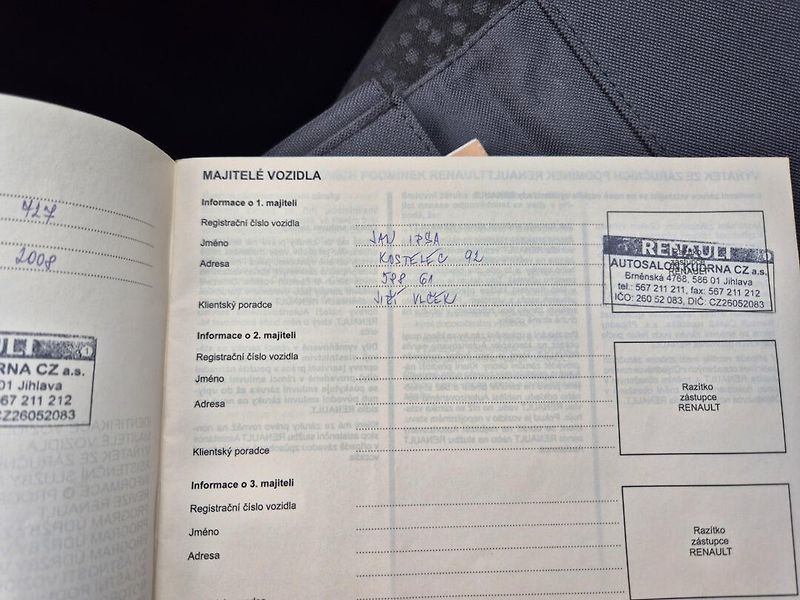 727
2008
RNA CZ a.s.
01 Jihlava
567 211 212
CZ26052083
MAJITELÉ VOZIDLA
Informace o 1. majiteli
Registrační číslo vozidla
Jméno JAN IPŠA
Adresa KOSTELEC 92
588 61
Klientský poradce JIŘÍ VLČEK
RENAULT
AUTOSALON KUDRNA CZ a.s.
Brněnská 4768, 586 01 Jihlava
tel.: 567 211 211, fax: 567 211 212
IČO: 260 52 083, DIČ: CZ26052083
Informace o 2. majiteli
Registrační číslo vozidla
Jméno
Adresa
Klientský poradce
Razítko
zástupce
RENAULT
Informace o 3. majiteli
Registrační číslo vozidla
Jméno
Adresa
Razítko
zástupce
RENAULT